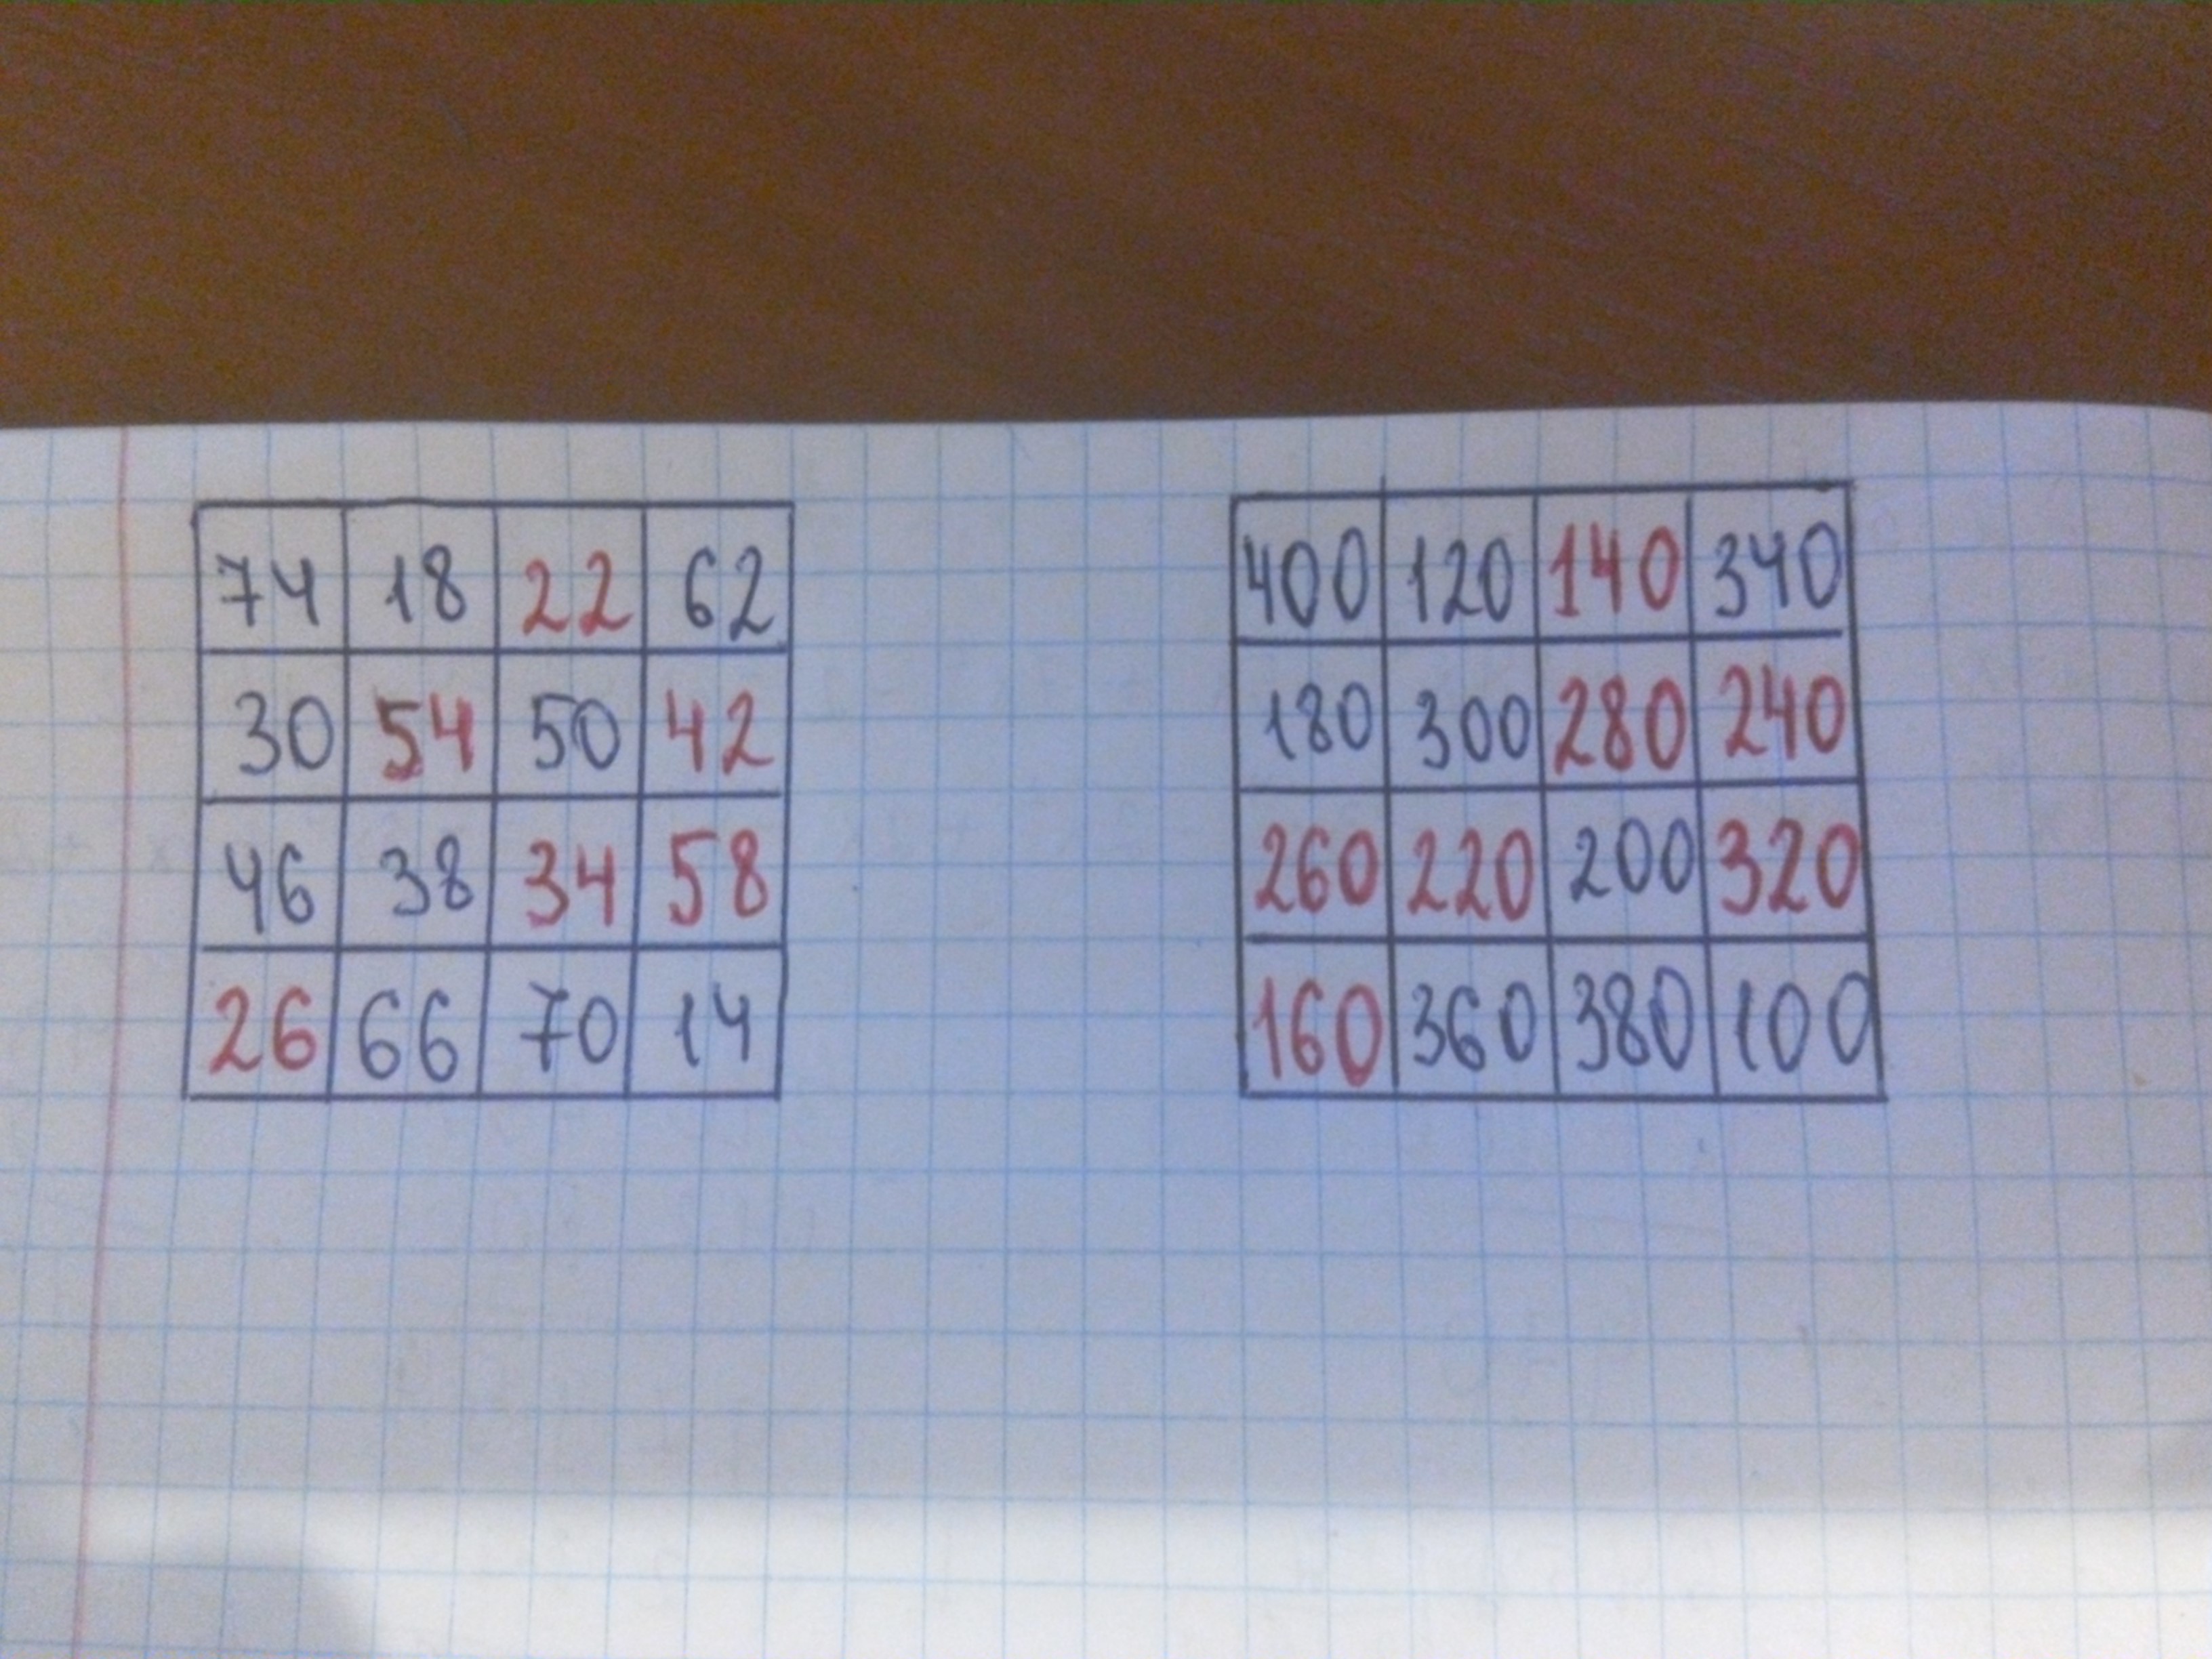 74 18 22 62
30 54 50 42
46 38 34 58
26 66 70 14
400 120 140 340
180 300 280 240
260 220 200 320
160 360 380 100